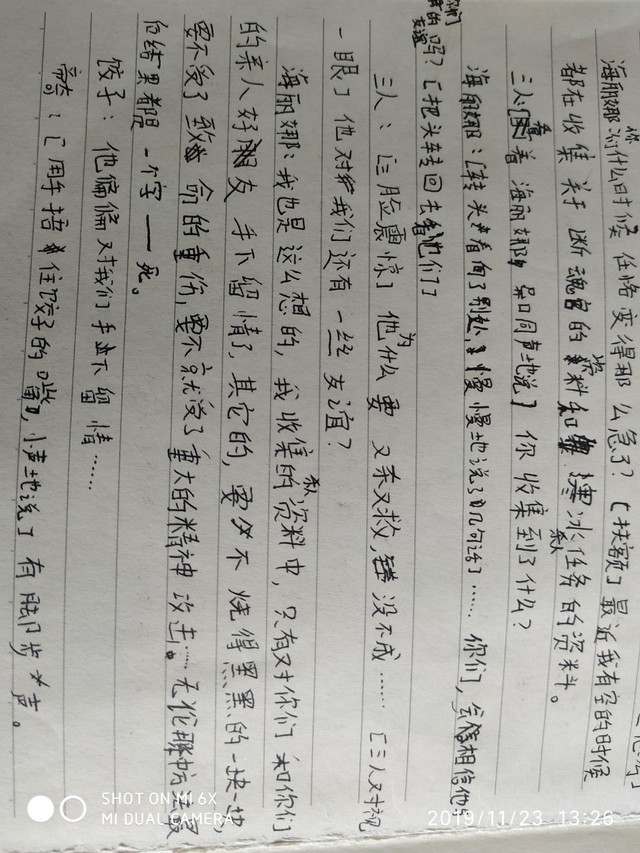 海丽娜:你为什么时候任恪变得那么急了?[扶额]最近我有空的时候
都在收集关于断魂宫的资料和寒冰任务的资料。
三人:[看着海丽娜,异口同声地说]你收集到了什么?
海丽娜:[转头看向了别处,慢慢地说了几句话]……你们,会相信他
们吗?[把头转回去看他们]
三人:[三脸震惊]他为什么要又杀又救,没不成……[三人对视
一眼]他对我们还有一丝友谊?
海丽娜:我也是这么想的,我收集的资料中,只有对你们和你们
的亲人好朋友手下留情了,其它的,要么不烧得黑黑的一块一块,
要不受了致命的重伤,要不就受了重大的精神攻击……无论
后结果都是一个字——死。
饺子:他偏偏对我们手下留情……
:[用手捂住饺子的嘴,小声地说]有脚步声。
SHOT ON MI 6X
MI DUAL CAMERA
2019/11/23 13:26